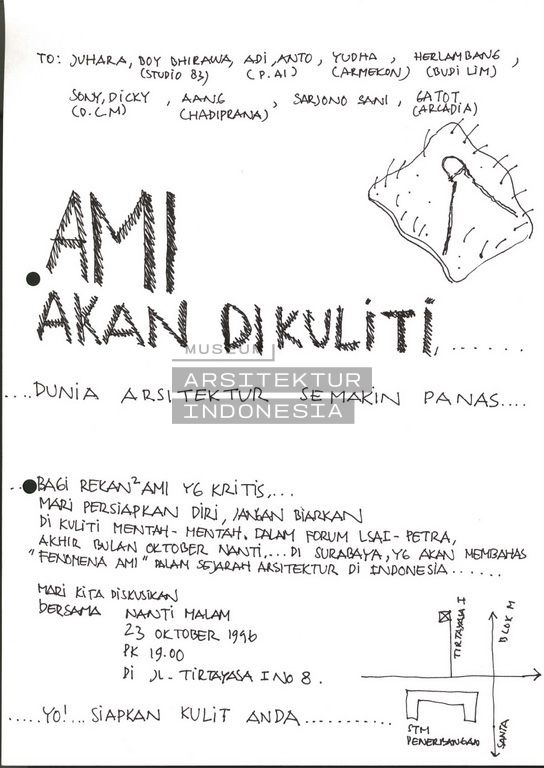 TO: JUHARA, BOY BHIRAWA, ADI, ANTO, YUDHA, HERLAMBANG,
(STUDIO 83) (P.AI) (ARMEKON) (BUDI LIM)
SONY, DICKY, AANG, SARJONO SANI, GATOT
(D.C.M) (HADIPRANA) (ARCADIA)
AMI
AKAN DIKULITI, ......
MUSEUM
ARSITEKTUR
INDONESIA
....DUNIA ARSITEKTUR SEMAKIN PANAS....
..BAGI REKAN² AMI YG KRITIS,...
MARI PERSIAPKAN DIRI, JANGAN BIARKAN
DI KULITI MENTAH-MENTAH. DALAM FORUM LSAI-PETRA,
AKHIR BULAN OKTOBER NANTI,... DI SURABAYA, YG AKAN MEMBAHAS
"FENOMENA AMI" DALAM SEJARAH ARSITEKTUR DI INDONESIA......
MARI KITA DISKUSIKAN
BERSAMA NANTI MALAM
23 OKTOBER 1996
PK 19.00
DI JL. TIRTAYASA I NO 8.
TIRTAYASA I
BLOK M
STM
PENERBANGAN
SANTA
.....YO!...SIAPKAN KULIT ANDA...........